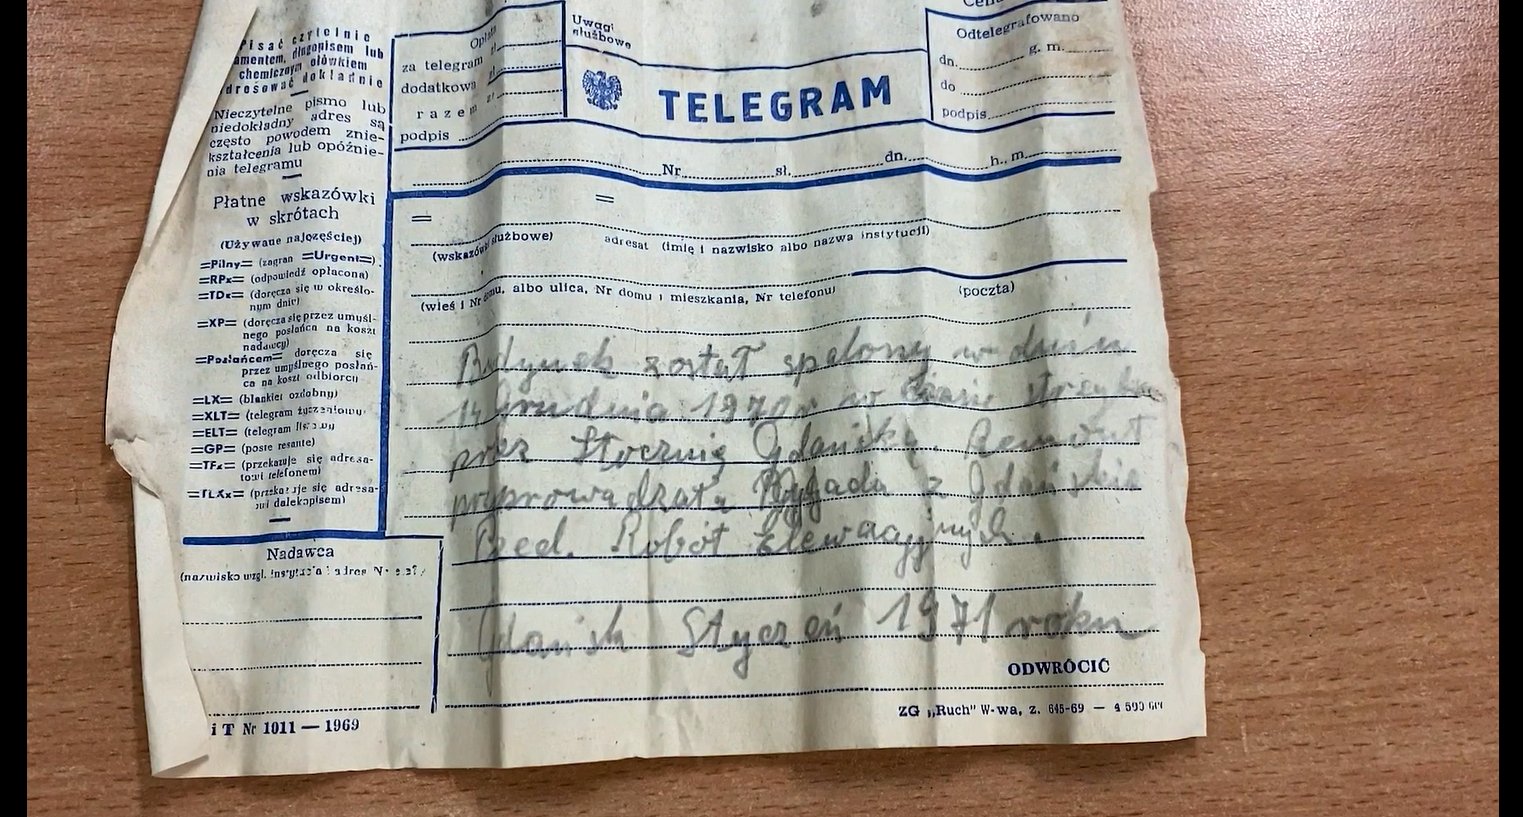 Pisać czytelnie
amentem, długopisem lub
chemicznym ołówkiem
dresować dokładnie
Nieczytelne pismo lub
niedokładny adres są
często powodem znie-
kształcenia lub opóźnie-
nia telegramu
Płatne wskazówki
w skrótach
(Używane najczęściej)
=Pilny= (zagran =Urgent=)
=RPx= (odpowiedź opłacona)
=TDx= (doręcza się w określo-
nym dniu)
=XP= (doręcza się przez umyśl-
nego posłańca na koszt
nadawcy)
=Posłańcem= doręcza się
przez umyślnego posłań-
ca na koszt odbiorcy
=LX= (blankiet ozdobny)
=XLT= (telegram życzeniowy
=ELT= (telegram listowy
=GP= (poste restante)
=TFx= (przekazuje się adresa-
towi telefonem)
=TLXx= (przekazuje się adresa-
towi dalekopisem)
Nadawca
(nazwisko wzgl. instytucja i adres Nr
iT Nr 1011 — 1969
Opłata
za telegram zł
dodatkowa zł
razem zł
podpis
Uwagi
służbowe
TELEGRAM
Odtelegrafowano
dn. g. m.
do
podpis
Nr sł. dn. h., m.
= =
(wskazówki służbowe) adresat (imię i nazwisko albo nazwa instytucji)
(wieś i Nr domu, albo ulica, Nr domu i mieszkania, Nr telefonu) (poczta)
Budynek został spalony w dniu
14 Grudnia 1970 r w czasie
przez Stocznię Gdańską. Remont
Brygada z Gdańskie
Robót Elewacyjnych.
Gdańsk Styczeń 1971 roku
ODWRÓCIĆ
ZG „Ruch" W-wa, z. 645-69 —